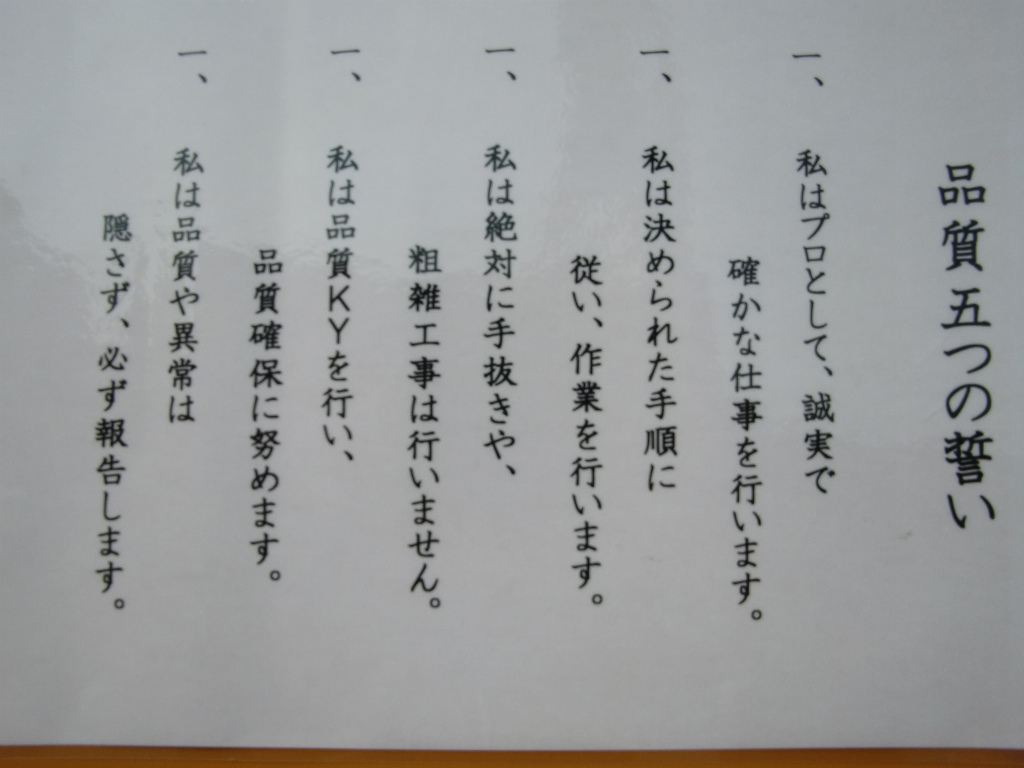 品質五つの誓い
一、私はプロとして、誠実で
確かな仕事を行います。
一、私は決められた手順に
従い、作業を行います。
一、私は絶対に手抜きや、
粗雑工事は行いません。
一、私は品質KYを行い、
品質確保に努めます。
一、私は品質や異常は
隠さず、必ず報告します。